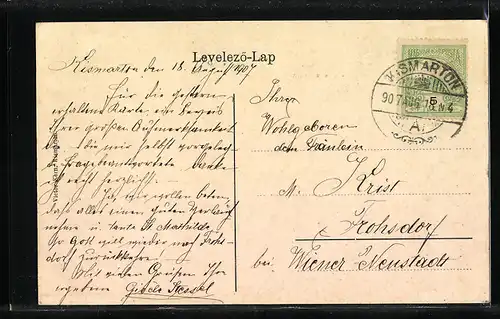 Levelező-Lap
Kismarton den 18. August 1907
Für die gestern
erhaltene Karte, ein Beweis
Ihrer großen Aufmerksamkeit
die mir selbst
danke
recht herzlich!
Ja, wir wollen beten,
daß alles einen guten Verlauf
nehme u. Tante St. Mathilde
Gott will wieder nach Frohs-
dorf zurückkehren!
Mit vielen Grüßen Ihre
ergebene Gisela
KISMARTON
907 AUG
5
Ihrer
Wohlgeboren
dem Fräulein
M. Krist
Frohsdorf
bei Wiener Neustadt